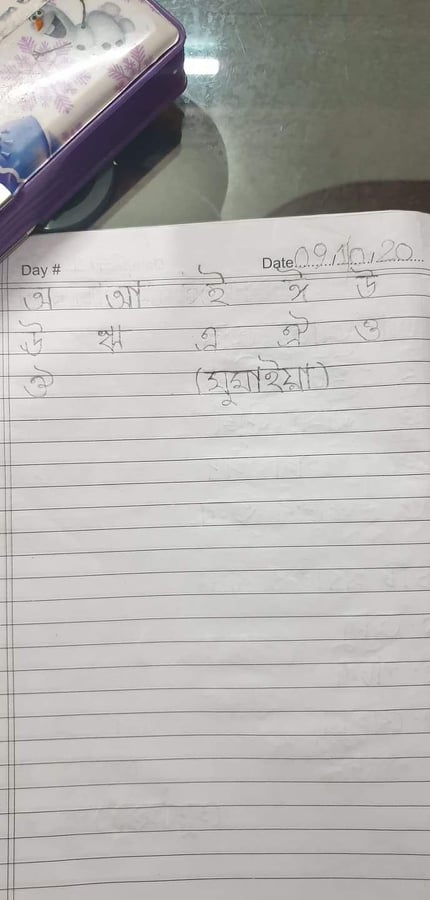 Day # Date 09,10,20
অ আ ই ঈ উ
ঊ ঋ এ ঐ ও
ঔ (সুমাইয়া)